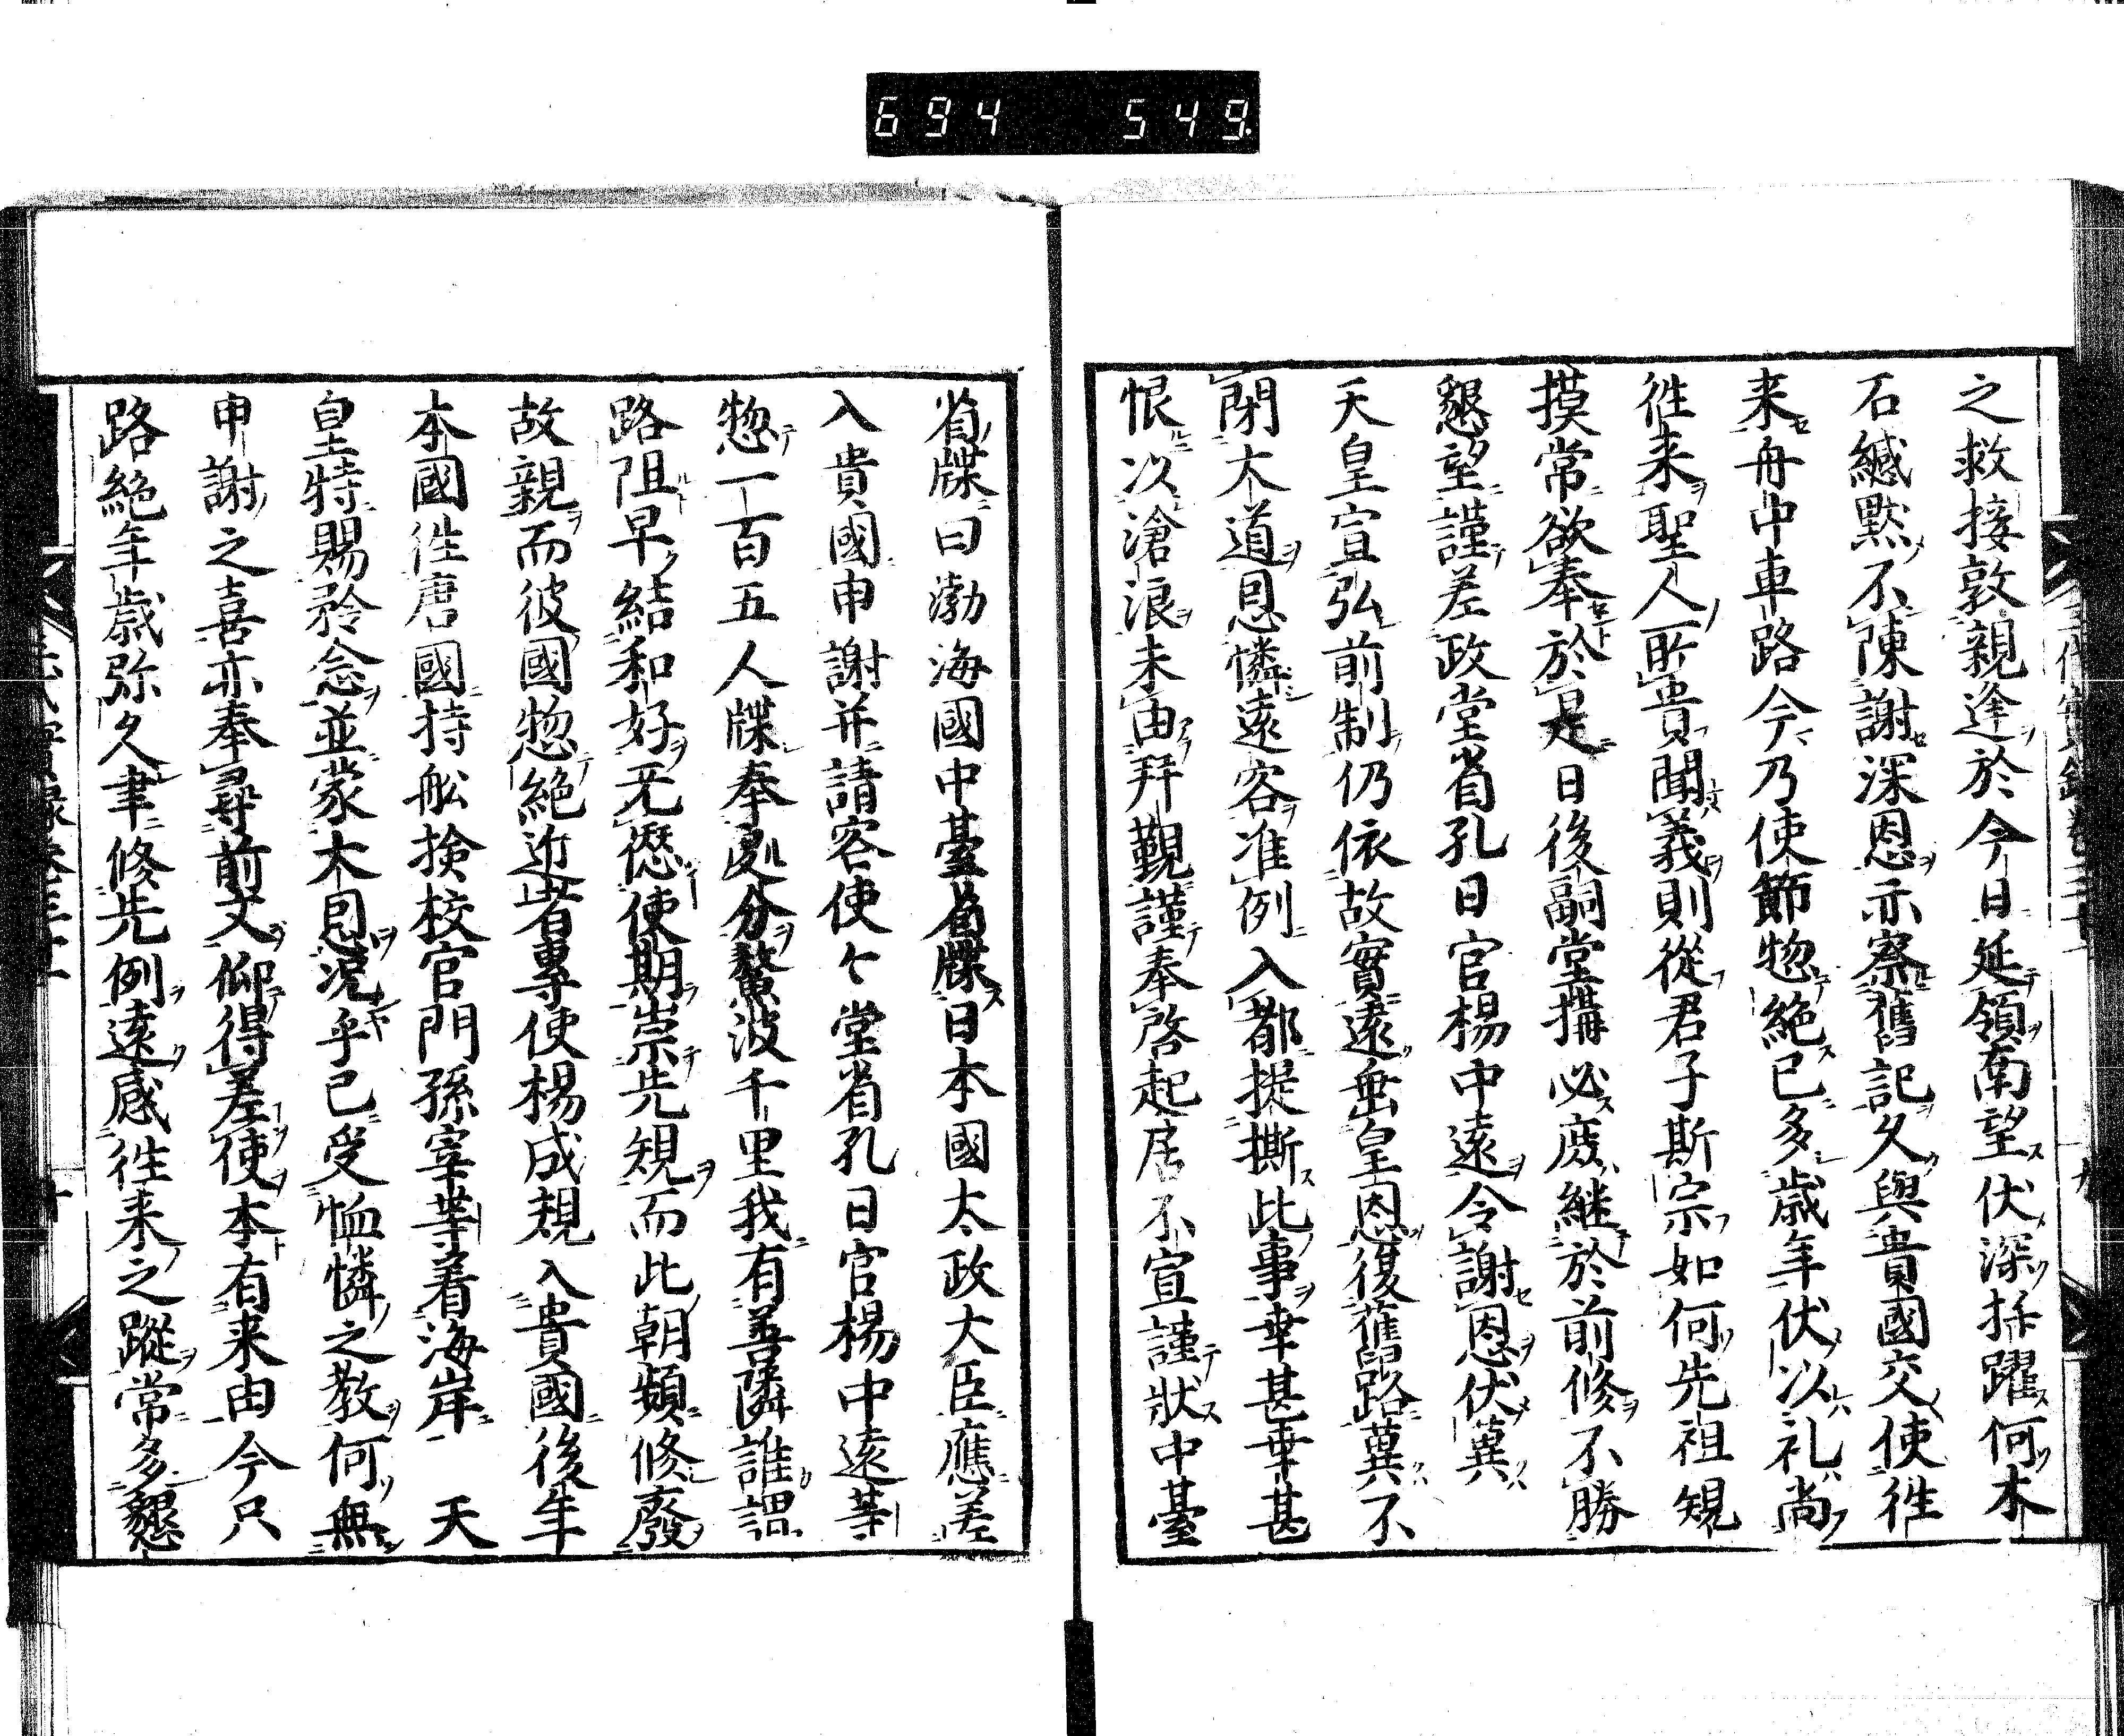 694 549.
之救接敦親逢於今日延領南望伏深抃躍何木
石緘黙不陳謝深恩示察舊記久與貴國交使徃
来舟中車路今乃使節惣絶已多歳年伏以礼尚
徃来聖人所貴聞義則從君子斯宗如何先祖規
摸常欲奉於是日後嗣堂搆必庶継於前修不勝
懇望謹差政堂省孔目官楊中遠令謝恩伏冀
天皇宣弘前制仍依故實遠垂皇恩復舊路冀不
閇大道恩憐遠容准例入都提撕此事幸甚幸甚
恨以滄浪未由拜覲謹奉啓起居不宣謹状中臺
省牒曰渤海國中臺省牒日本國太政大臣應差
入貴國申謝并請客使政堂省孔目官楊中遠等
惣一百五人牒奉處分鰲波千里我有善隣誰謂
路阻早結和好无愆使期崇先規而此朝頻修廢
故親而彼國惣絶近者專使楊成規入貴國後年
本國徃唐國持舩撿校官門孫宰等着海岸 天
皇特賜矜念並蒙大恩况乎已受恤憐之教何無
申謝之喜亦奉尋前文仰得差使本有来由今只
路絶年歳弥久聿修先例遠感徃来之蹤常多懇